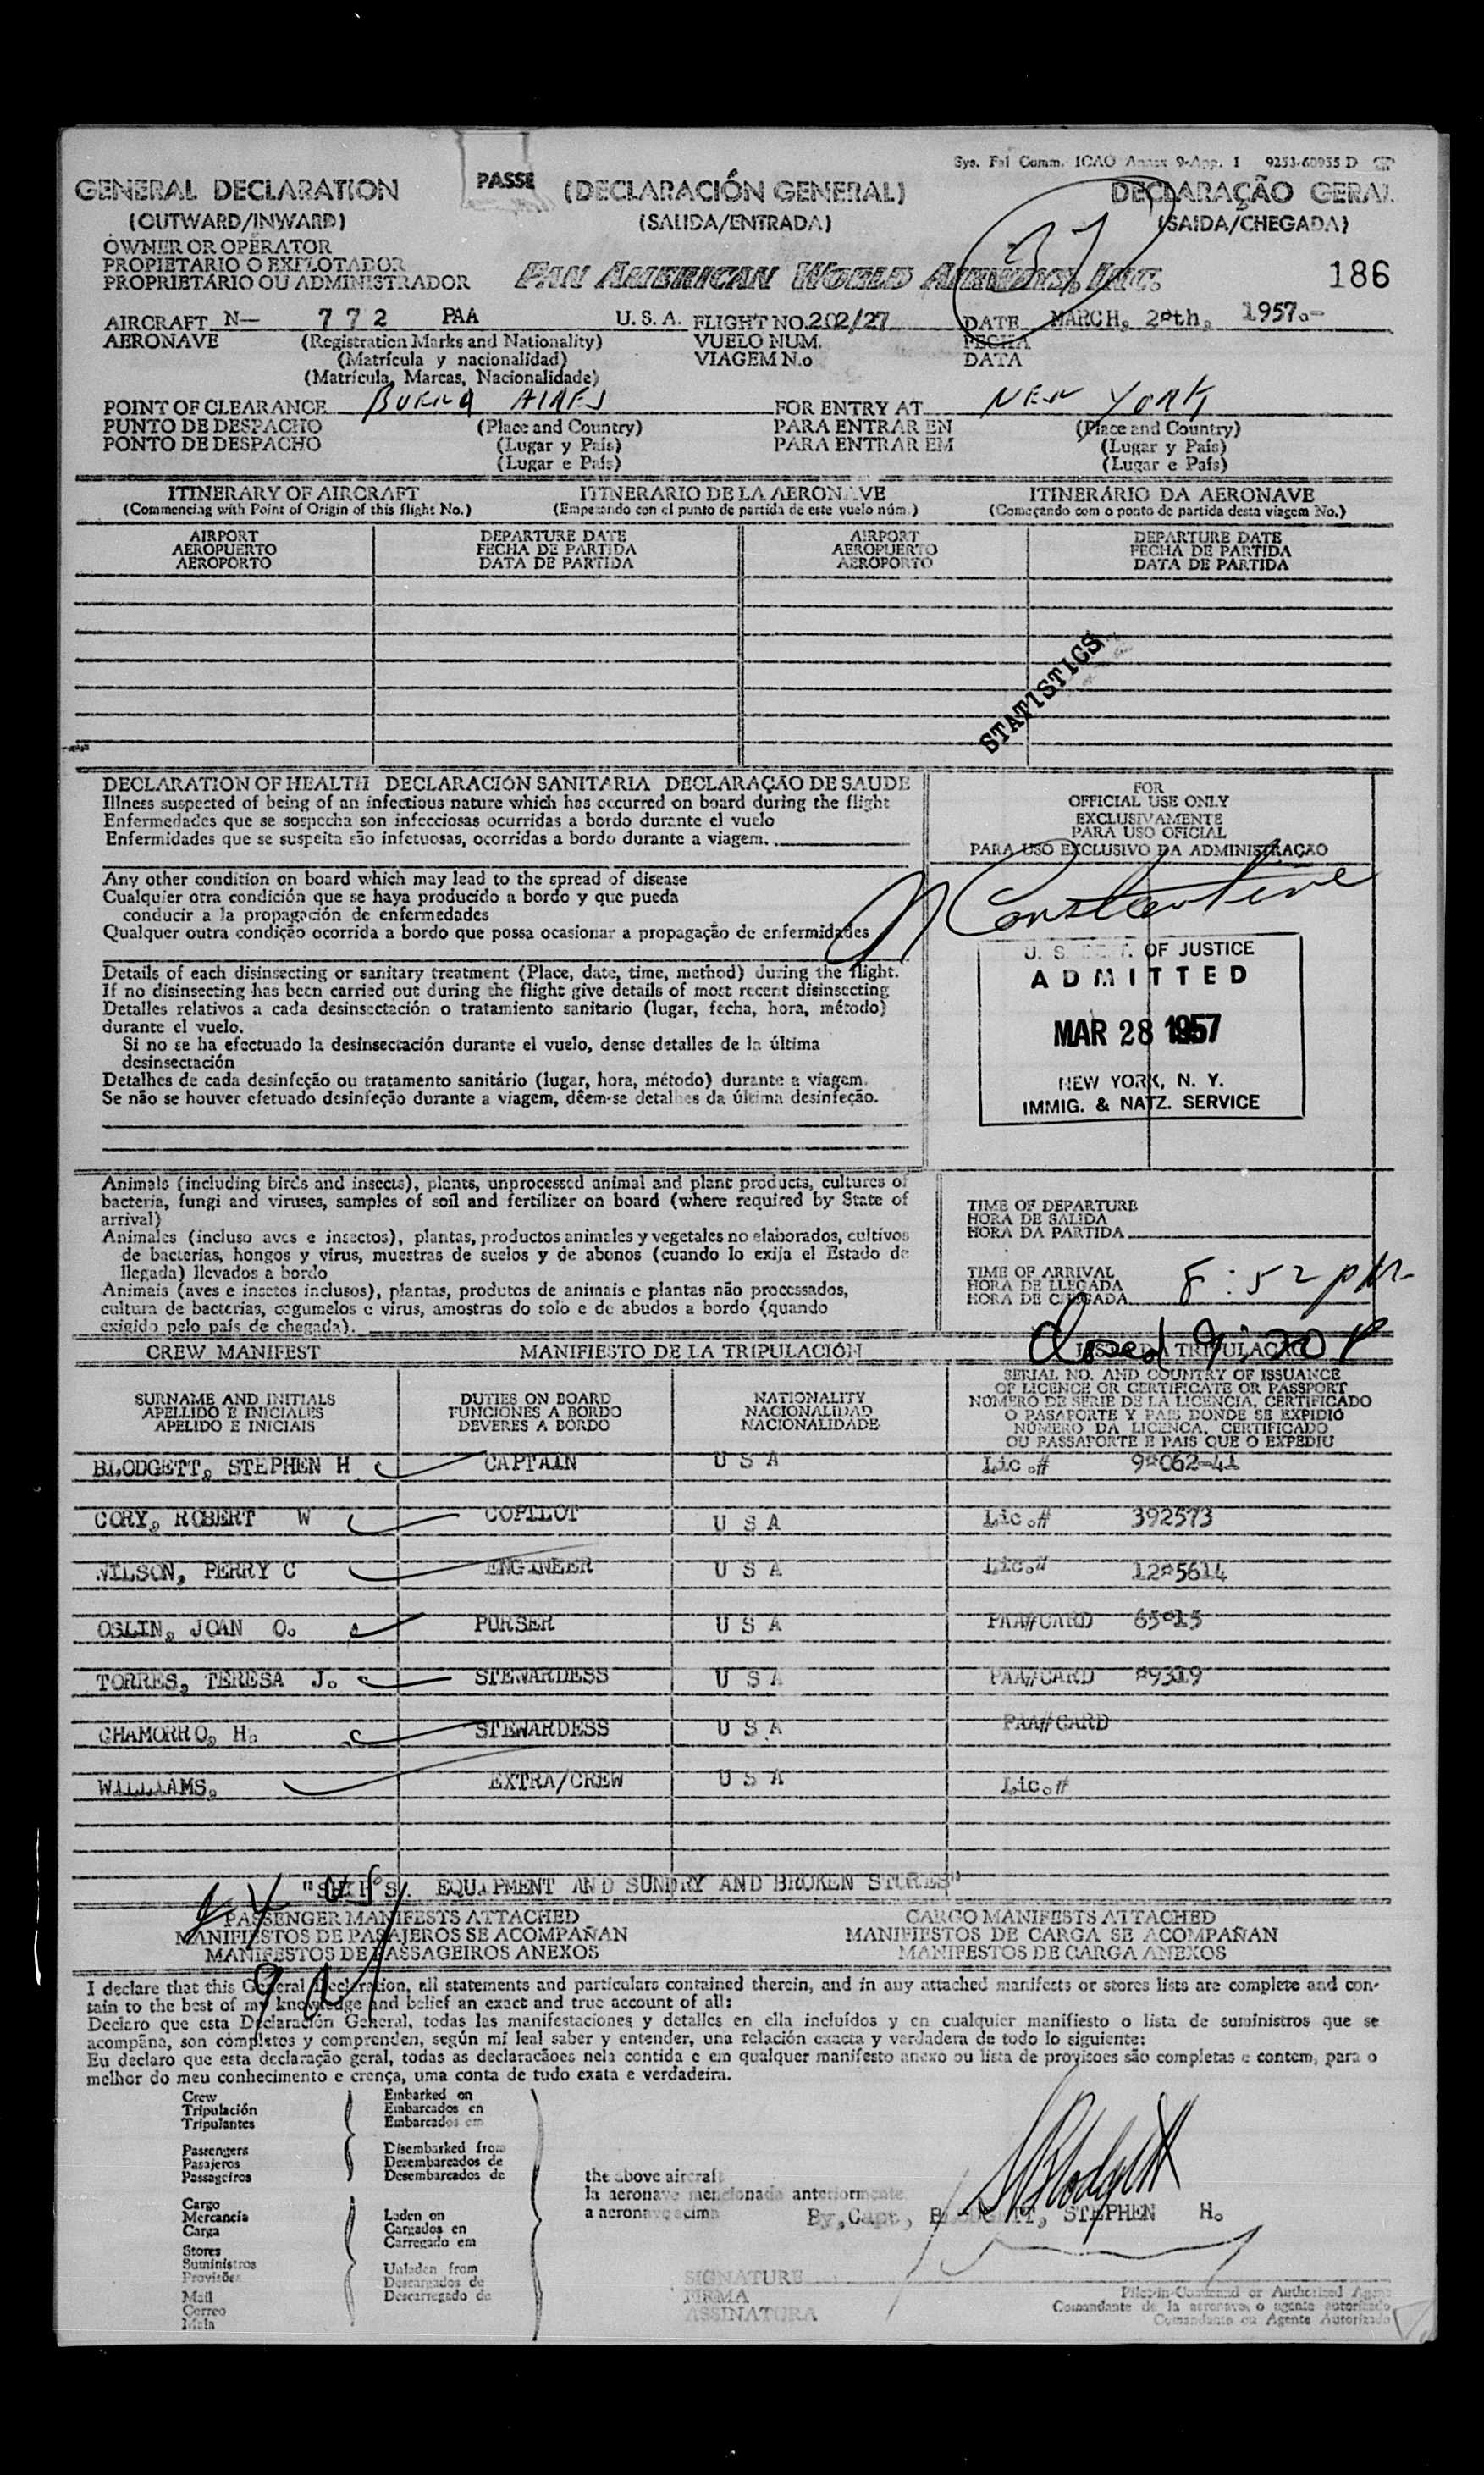 Sys. Fal Comm. ICAO Annex 9-App. 1 9253-60955 D
GENERAL DECLARATION PASSE (DECLARACIÓN GENERAL) DECLARAÇÃO GERAL
(OUTWARD/INWARD) (SALIDA/ENTRADA) (SAIDA/CHEGADA)
OWNER OR OPERATOR
PROPIETARIO O EXPLOTADOR
PROPRIETÁRIO OU ADMINISTRADOR PAN AMERICAN WORLD AIRWAYS, INC. 186
AIRCRAFT N— 7 7 2 PAA U. S. A. FLIGHT NO. 202/27 DATE MARCH, 1957.-
AERONAVE (Registration Marks and Nationality) VUELO NUM. FECHA
(Matrícula y nacionalidad) VIAGEM N.o DATA
(Matrícula, Marcas, Nacionalidade)
POINT OF CLEARANCE AIRES FOR ENTRY AT NEW YORK
PUNTO DE DESPACHO (Place and Country) PARA ENTRAR EN (Place and Country)
PONTO DE DESPACHO (Lugar y País) PARA ENTRAR EM (Lugar y País)
(Lugar e País) (Lugar e País)
ITINERARY OF AIRCRAFT ITINERARIO DE LA AERONAVE ITINERÁRIO DA AERONAVE
(Commencing with Point of Origin of this flight No.) (Empezando con el punto de partida de este vuelo núm.) (Começando com o ponto de partida desta viagem No.)
AIRPORT DEPARTURE DATE AIRPORT DEPARTURE DATE
AEROPUERTO FECHA DE PARTIDA AEROPUERTO FECHA DE PARTIDA
AEROPORTO DATA DE PARTIDA AEROPORTO DATA DE PARTIDA
STATISTICS
DECLARATION OF HEALTH DECLARACIÓN SANITARIA DECLARAÇÃO DE SAUDE
Illness suspected of being of an infectious nature which has occurred on board during the flight
Enfermedades que se sospecha son infecciosas ocurridas a bordo durante el vuelo
Enfermidades que se suspeita são infetuosas, ocorridas a bordo durante a viagem.
Any other condition on board which may lead to the spread of disease
Cualquier otra condición que se haya producido a bordo y que pueda
conducir a la propagación de enfermedades
Qualquer outra condição ocorrida a bordo que possa ocasionar a propagação de enfermidades
Details of each disinsecting or sanitary treatment (Place, date, time, method) during the flight.
If no disinsecting has been carried out during the flight give details of most recent disinsecting
Detalles relativos a cada desinsectación o tratamiento sanitario (lugar, fecha, hora, método)
durante el vuelo.
Si no se ha efectuado la desinsectación durante el vuelo, dense detalles de la última
desinsectación
Detalhes de cada desinfeção ou tratamento sanitário (lugar, hora, método) durante a viagem.
Se não se houver efetuado desinfeção durante a viagem, dêem-se detalhes da última desinfeção.
FOR
OFFICIAL USE ONLY
EXCLUSIVAMENTE
PARA USO OFICIAL
PARA USO EXCLUSIVO DA ADMINISTRAÇÃO
Constantine
U. S. DEPT. OF JUSTICE
ADMITTED
MAR 28 1957
NEW YORK, N. Y.
IMMIG. & NATZ. SERVICE
Animals (including birds and insects), plants, unprocessed animal and plant products, cultures of
bacteria, fungi and viruses, samples of soil and fertilizer on board (where required by State of
arrival)
Animales (incluso aves e insectos), plantas, productos animales y vegetales no elaborados, cultivos
de bacterias, hongos y virus, muestras de suelos y de abonos (cuando lo exija el Estado de
llegada) llevados a bordo
Animais (aves e insetos inclusos), plantas, produtos de animais e plantas não processados,
cultura de bacterias, cogumelos e virus, amostras do solo e de abudos a bordo (quando
exigido pelo país de chegada).
TIME OF DEPARTURE
HORA DE SALIDA
HORA DA PARTIDA
TIME OF ARRIVAL
HORA DE LLEGADA 8:52 pm-
HORA DE CHEGADA
Closed 9:20 P
CREW MANIFEST MANIFIESTO DE LA TRIPULACIÓN LISTA DA TRIPULAÇÃO
SURNAME AND INITIALS DUTIES ON BOARD NATIONALITY SERIAL NO. AND COUNTRY OF ISSUANCE
APELLIDO E INICIALES FUNCIONES A BORDO NACIONALIDAD OF LICENCE OR CERTIFICATE OR PASSPORT
APELIDO E INICIAIS DEVERES A BORDO NACIONALIDADE NÚMERO DE SERIE DE LA LICENCIA, CERTIFICADO
O PASAPORTE Y PAIS DONDE SE EXPIDIÓ
NÚMERO DA LICENCA, CERTIFICADO
OU PASSAPORTE E PAIS QUE O EXPEDIU
BLODGETT, STEPHEN H CAPTAIN U S A Lic.#
CORY, ROBERT W COPILOT U S A Lic.# 392573
WILSON, PERRY C ENGINEER U S A Lic.#
OSLIN, JOAN O. PURSER U S A PAA#CARD
TORRES, TERESA J. STEWARDESS U S A PAA#CARD
CHAMORRO, H. STEWARDESS U S A PAA#CARD
WILLIAMS, EXTRA/CREW U S A Lic.#
"SHIP'S. EQUIPMENT AND SUNDRY AND BROKEN STORES"
PASSENGER MANIFESTS ATTACHED CARGO MANIFESTS ATTACHED
MANIFIESTOS DE PASAJEROS SE ACOMPAÑAN MANIFIESTOS DE CARGA SE ACOMPAÑAN
MANIFESTOS DE PASSAGEIROS ANEXOS MANIFESTOS DE CARGA ANEXOS
I declare that this General Declaration, all statements and particulars contained therein, and in any attached manifests or stores lists are complete and con-
tain to the best of my knowledge and belief an exact and true account of all:
Declaro que esta Declaración General, todas las manifestaciones y detalles en ella incluídos y en cualquier manifiesto o lista de suministros que se
acompãna, son completos y comprenden, según mi leal saber y entender, una relación exacta y verdadera de todo lo siguiente:
Eu declaro que esta declaração geral, todas as declaracãoes nela contida e em qualquer manifesto anexo ou lista de provisoes são completas e contem, para o
melhor do meu conhecimento e crença, uma conta de tudo exata e verdadeira.
Crew Embarked on
Tripulación Embarcados en
Tripulantes Embarcados em
Passengers Disembarked from
Pasajeros Desembarcados de
Passageiros Desembarcados de
Cargo
Mercancia Laden on
Carga Cargados en
Stores Carregado em
Suministros Unladen from
Provisões Descargados de
Mail Descarregado de
Correo
Mala
the above aircraft
la aeronave mencionada anteriormente
a aeronave acima By, Capt, BLODGETT, STEPHEN H.
SBlodgett
SIGNATURE
FIRMA
ASSINATURA
Pilot-in-Command or Authorized Agent
Comandante de la aeronave, o agente autorizado
Comandante ou Agente Autorizado